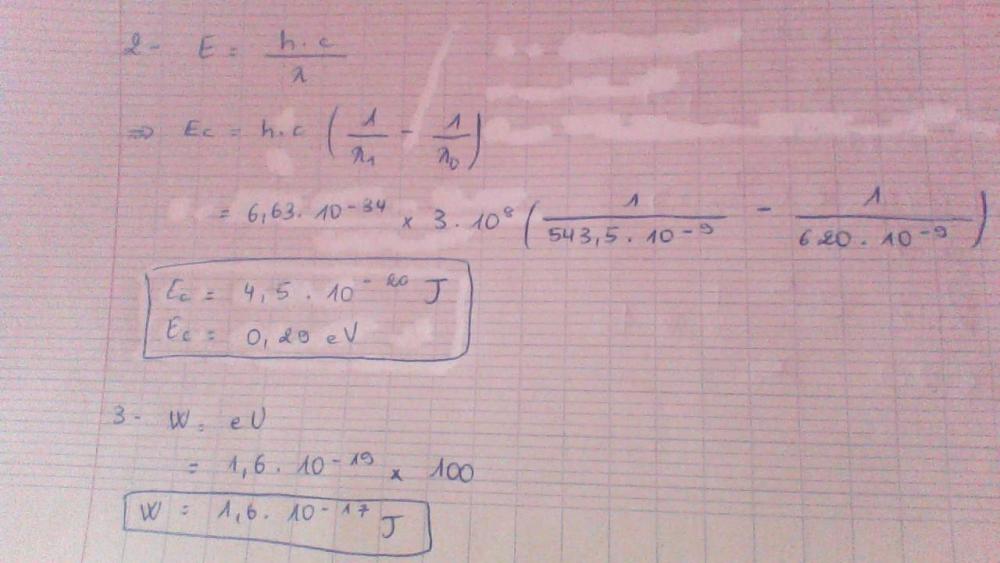 2- E = h.c / λ
=> Ec = h.c ( 1/λ₁ - 1/λ₀ )
= 6,63. 10⁻³⁴ x 3. 10⁸ ( 1 / 543,5. 10⁻⁹ - 1 / 620. 10⁻⁹ )
Ec = 4,5. 10⁻²⁰ J
Ec = 0,29 eV
3- W = eU
= 1,6. 10⁻¹⁹ x 100
W = 1,6. 10⁻¹⁷ J